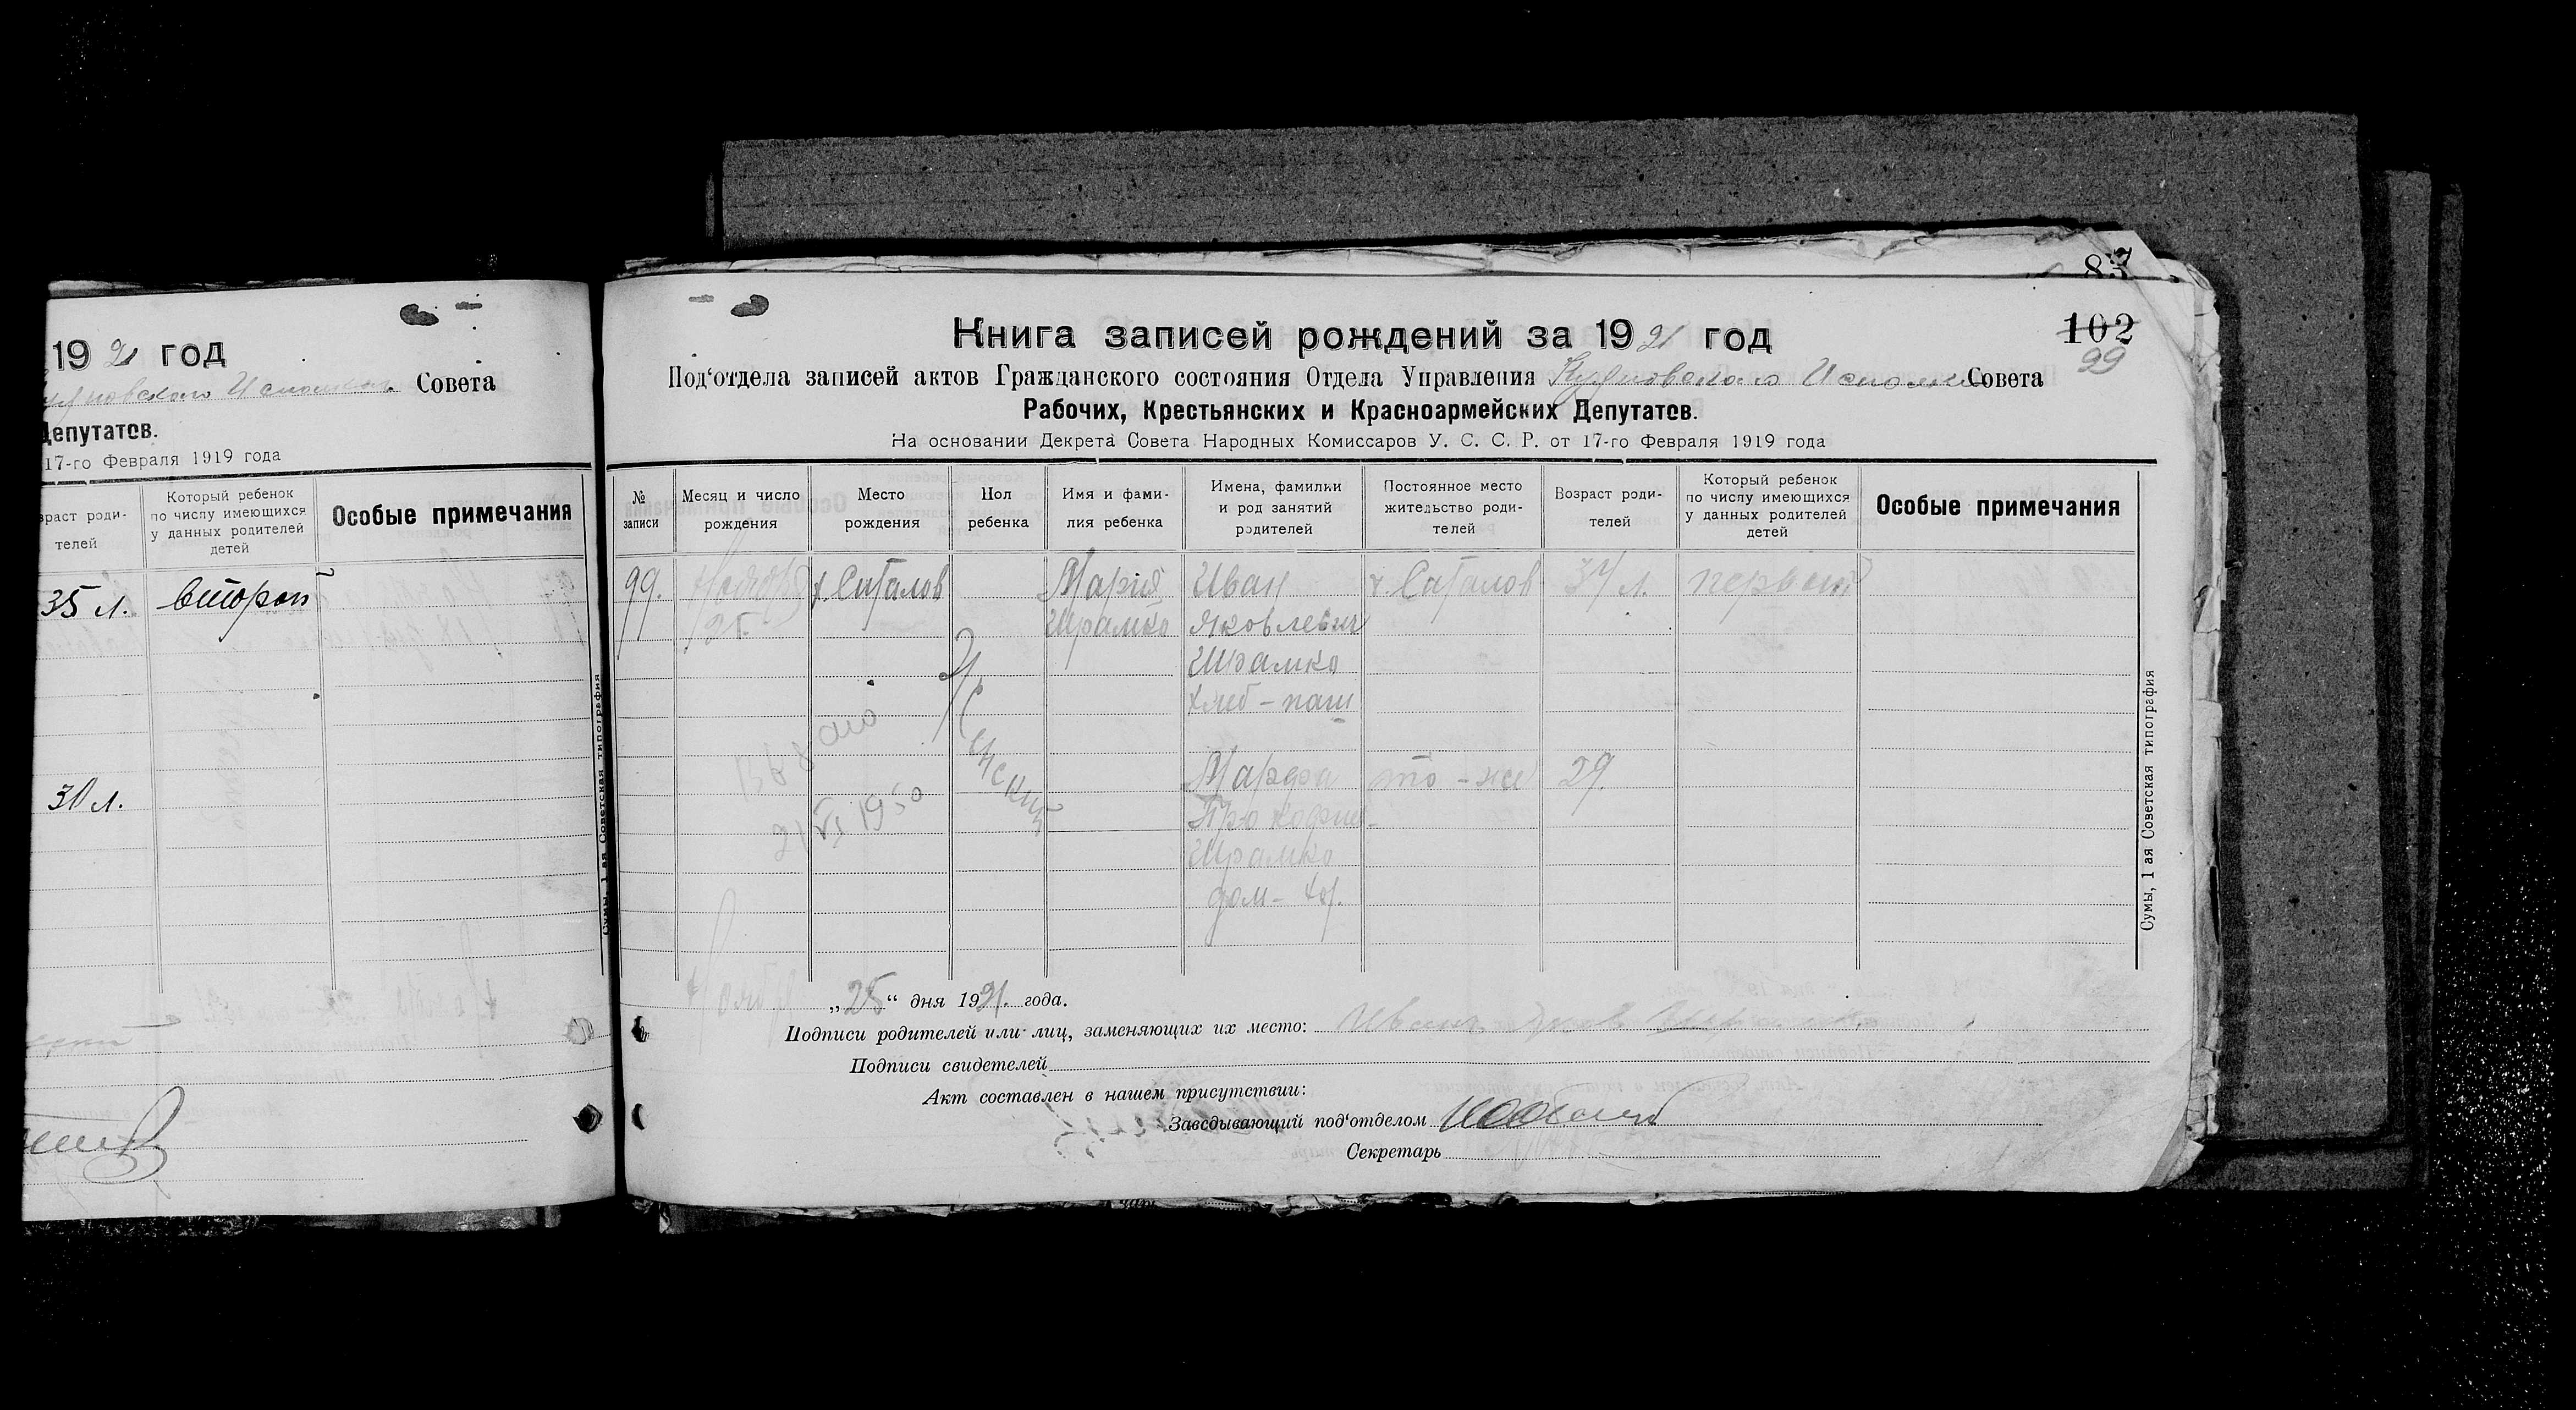 19 21 год
Совета
Депутатов.
17-го Февраля 1919 года
раст роди-
телей
Который ребенок
по числу имеющихся
у данных родителей
детей
Особые примечания
35 л.
второй
30 л.
Сумы, 1 ая Советская типография
87
Книга записей рождений за 1921 год
102
99
Под‘отдела записей актов Гражданского состояния Отдела Управления Совета
Рабочих, Крестьянских и Красноармейских Депутатов.
На основании Декрета Совета Народных Комиссаров У. С. С. Р. от 17-го Февраля 1919 года
№
записи
Месяц и число
рождения
Место
рождения
Пол
ребенка
Имя и фами-
лия ребенка
Имена, фамилии
и род занятий
родителей
Постоянное место
жительство роди-
телей
Возраст роди-
телей
Который ребенок
по числу имеющихся
у данных родителей
детей
Особые примечания
99.
Ноября
25.
х. Саталов
Женский
Мария
Шрамко
Иван
Яковлевич
Шрамко
хлеб-паш
х. Саталов
34 л.
первый
Марфа
Прокофие-
Шрамко
дом-хоз.
то-же
29.
Выдано
21 VI 1950
Ноября „25“ дня 1921. года.
Подписи родителей или лиц, заменяющих их место: Иван
Подписи свидетелей
Акт составлен в нашем присутствии:
Заведывающий под‘отделом
Секретарь
Сумы, 1 ая Советская типография